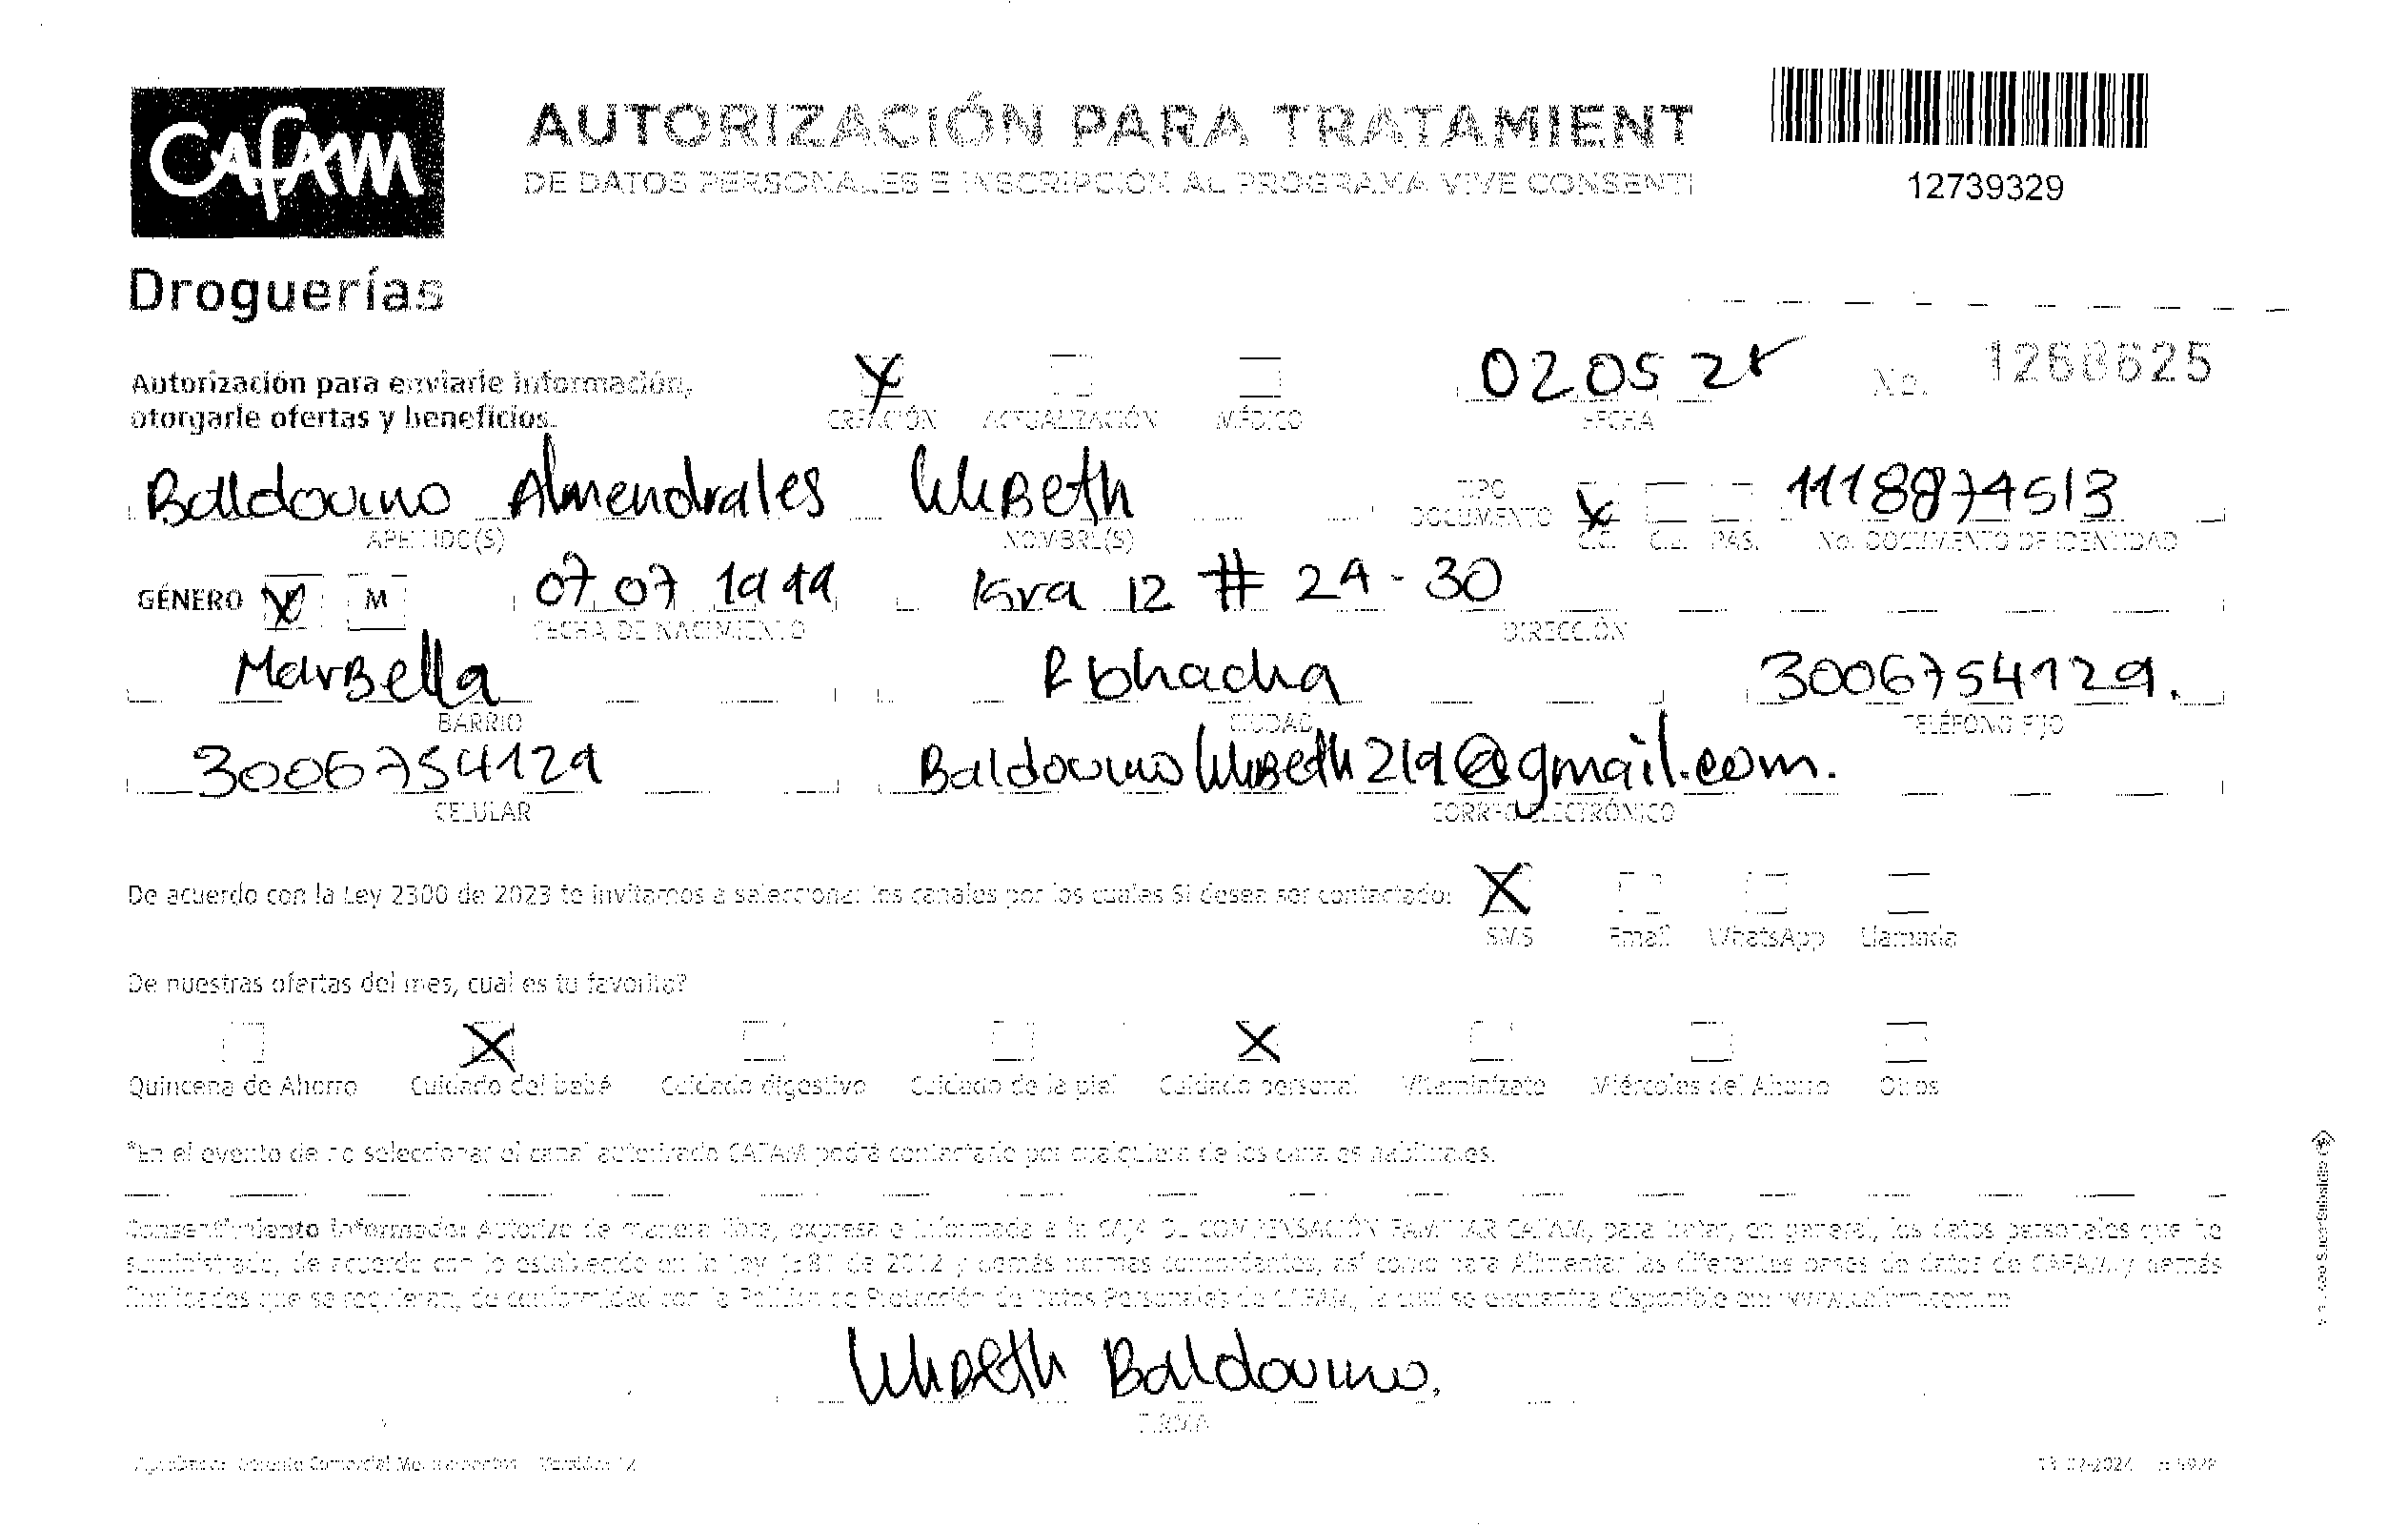 CAFAM
AUTORIZACIÓN PARA TRATAMIENT
DE DATOS PERSONALES E INSCRIPCIÓN AL PROGRAMA VIVE CONSENTI
12739329
Droguerías
Autorización para enviarle información,
otorgarle ofertas y beneficios.
CREACIÓN ACTUALIZACIÓN MÉDICO
02 05 25
FECHA
No. 1268625
Baldovino Almendrales
APELLIDO(S)
NOMBRE(S)
TIPO
DOCUMENTO
C.C. C.E. PAS.
1118874513
No. DOCUMENTO DE IDENTIDAD
GÉNERO M
07 07 19
FECHA DE NACIMIENTO
Kra 12 # 2A - 30
DIRECCIÓN
MarBella
BARRIO
Riohacha
CIUDAD
3006754129.
TELÉFONO FIJO
3006754129
CELULAR
@gmail.com.
CORREO ELECTRÓNICO
De acuerdo con la Ley 2300 de 2023 te invitamos a seleccionar los canales por los cuales SI desea ser contactado:
SMS Email WhatsApp Llamada
De nuestras ofertas del mes, cual es tu favorita?
Quincena de Ahorro Cuidado del bebé Cuidado digestivo Cuidado de la piel Cuidado personal Vitaminízate Miércoles del Ahorro Otros
*En el evento de no seleccionar el canal autorizado CAFAM podrá contactarlo por cualquiera de los canales habituales.
Consentimiento informado: Autorizo de manera libre, expresa e informada a la CAJA DE COMPENSACIÓN FAMILIAR CAFAM, para tratar, en general, los datos personales que he
suministrado, de acuerdo con lo establecido en la Ley 1581 de 2012 y demás normas concordantes, así como para Alimentar las diferentes bases de datos de CAFAM y demás
finalidades que se requieran, de conformidad con la Política de Protección de Datos Personales de CAFAM, la cual se encuentra disponible en: www.cafam.com.co
Baldovino.
FIRMA